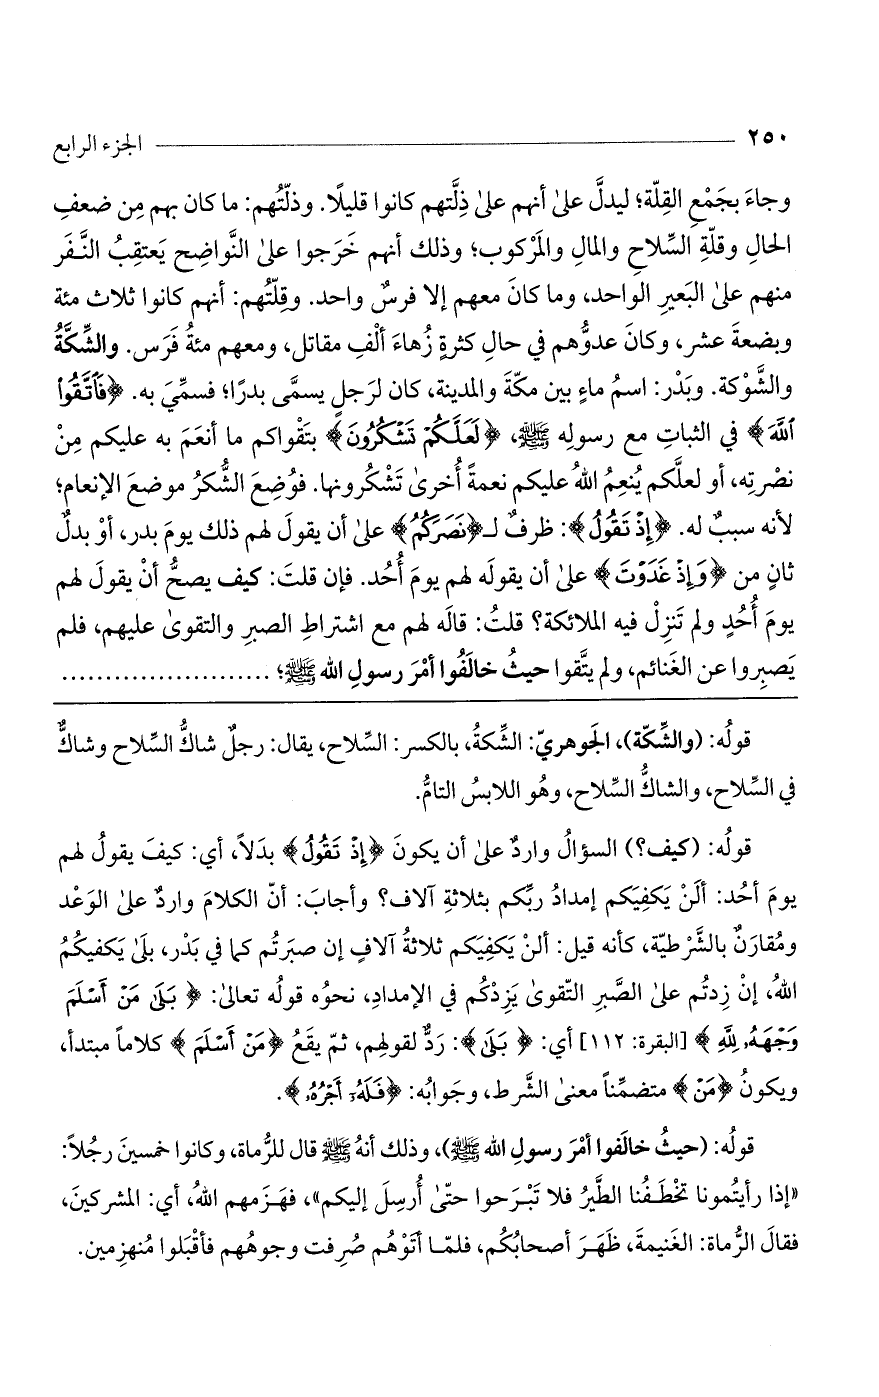 ٢٥٠ الجزء الرابع
وجاءَ بجَمْعِ القِلّة؛ ليدلَّ علىٰ أنهم علىٰ ذِلَّتهم كانوا قليلًا. وذلّتُهم: ما كان بهم مِن ضعفِ
الحالِ وقلّةِ السِّلاحِ والمالِ والمَرْكوب؛ وذلك أنهم خَرَجوا علىٰ النَّواضِح يَعتقِبُ النَّفَر
منهم علىٰ البَعيرِ الواحد، وما كانَ معهم إلا فرسٌ واحد. وقِلّتُهم: أنهم كانوا ثلاث مئة
وبضعةَ عشر، وكانَ عدوُّهم في حالِ كثرةٍ زُهاءَ ألْفِ مقاتل، ومعهم مئةُ فَرَس. والشِّكَّةُ
والشَّوْكة. وبَدْر: اسمُ ماءٍ بين مكّةَ والمدينة، كان لرَجلٍ يسمَّى بدرًا؛ فسمِّيَ به. ﴿فَٱتَّقُوا۟
ٱللَّهَ﴾ في الثباتِ مع رسولِه ﷺ، ﴿لَعَلَّكُمْ تَشْكُرُونَ﴾ بتَقْواكم ما أنعَمَ به عليكم مِنْ
نصْرتِه، أو لعلَّكم يُنعِمُ اللهُ عليكم نعمةً أُخرىٰ تَشْكُرونها. فوُضِعَ الشُّكرُ موضعَ الإنعام؛
لأنه سببٌ له. ﴿إِذْ تَقُولُ﴾: ظرفٌ لـ﴿نَصَرَكُمُ﴾ علىٰ أن يقولَ لهم ذلك يومَ بدر، أوْ بدلٌ
ثانٍ من ﴿وَإِذْ غَدَوْتَ﴾ علىٰ أن يقولَه لهم يومَ أُحُد. فإن قلتَ: كيف يصحُّ أنْ يقولَ لهم
يومَ أُحُدٍ ولم تَنزِلْ فيه الملائكة؟ قلتُ: قالَه لهم مع اشتراطِ الصبرِ والتقوىٰ عليهم، فلم
يَصبِروا عن الغَنائم، ولم يتَّقوا حيثُ خالَفُوا أمْرَ رسولِ الله ﷺ؛ ........................
قولُه: (والشِّكّة)، الجَوهريّ: الشِّكةُ، بالكسر: السِّلاح، يقال: رجلٌ شاكُّ السِّلاح وشاكٌّ
في السِّلاح، والشاكُّ السِّلاح، وهُو اللابسُ التامُّ.
قولُه: (كيف؟) السؤالُ واردٌ علىٰ أن يكونَ ﴿إِذْ تَقُولُ﴾ بدَلاً، أي: كيفَ يقولُ لهم
يومَ أُحُد: ألَنْ يَكفِيَكم إمدادُ ربِّكم بثلاثةِ آلاف؟ وأجابَ: أنّ الكلامَ واردٌ علىٰ الوَعْد
ومُقارَنٌ بالشَّرْطيّة، كأنه قيل: ألنْ يَكفِيَكم ثلاثةُ آلافٍ إن صبَرتُم كما في بَدْر، بلَىٰ يَكفيكُمُ
اللهُ، إنْ زِدتُم علىٰ الصَّبرِ التّقوىٰ يَزِدْكُم في الإمدادِ، نحوُه قولُه تعالىٰ: ﴿بَلَىٰ مَنْ أَسْلَمَ
وَجْهَهُۥ لِلَّهِ﴾ [البقرة: ١١٢] أي: ﴿بَلَىٰ﴾: ردٌّ لقولهِم، ثمّ يقَعُ ﴿مَنْ أَسْلَمَ﴾ كلاماً مبتدأ،
ويكونُ ﴿مَنْ﴾ متضمِّناً معنىٰ الشَّرط، وجَوابُه: ﴿فَلَهُۥٓ أَجْرُهُۥ﴾.
قولُه: (حيثُ خالَفوا أمْرَ رسولِ الله ﷺ)، وذلك أنهُ ﷺ قال للرُّماة، وكانوا خمسينَ رجُلاً:
«إذا رأيتُمونا تخْطَفُنا الطَّيرُ فلا تَبْرَحوا حتّىٰ أُرسِلَ إليكم»، فهَزَمهم اللهُ، أي: المشركينَ،
فقالَ الرُّماة: الغَنيمةَ، ظَهَرَ أصحابُكُم، فلمّا أتَوْهُم صُرِفت وجوهُهم فأقْبَلوا مُنهزِمين.